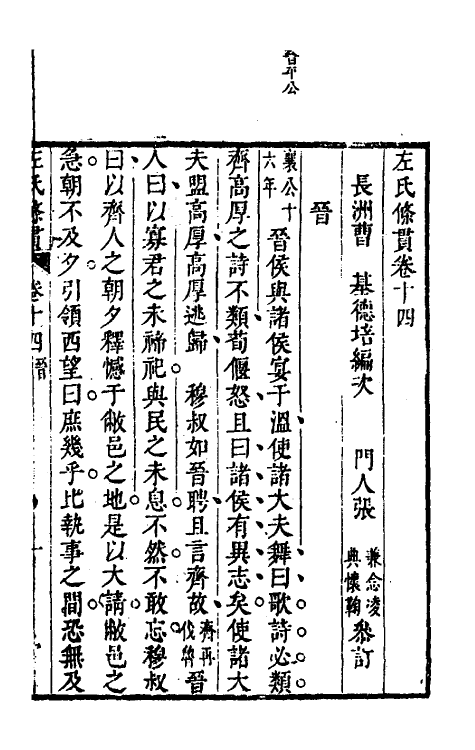 晉平公
左氏條貫卷十四
長洲曹　基德培編次　門人張　兼念淩　典懷鞠　叅訂
晉
襄公十六年　晉侯與諸侯宴于溫使諸大夫舞曰歌詩必類
齊高厚之詩不類荀偃怒且曰諸侯有異志矣使諸大
夫盟高厚高厚逃歸　穆叔如晉聘且言齊故齊再伐魯晉
人曰以寡君之未禘祀與民之未息不然不敢忘穆叔
曰以齊人之朝夕釋憾于敝邑之地是以大請敝邑之
急朝不及夕引領西望曰庶幾乎比執事之間恐無及
左氏條貫　卷十四晉